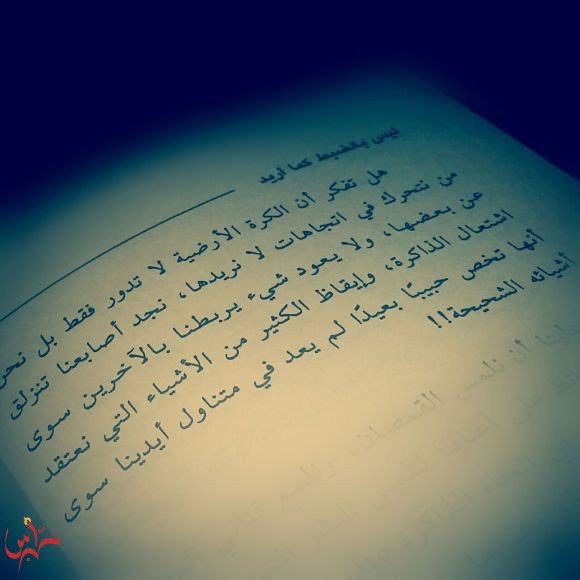 ليس بالضبط كما أريد
هل تفكر أن الكرة الأرضية لا تدور فقط بل نحن
من نتحرك في اتجاهات لا نريدها، نجد أصابعنا تنزلق
عن بعضها، ولا يعود شيء يربطنا بالآخرين سوى
اشتعال الذاكرة، وإيقاظ الكثير من الأشياء التي نعتقد
أنها تخص حبيبًا بعيدًا لم يعد في متناول أيدينا سوى
أشيائه الشحيحة!!